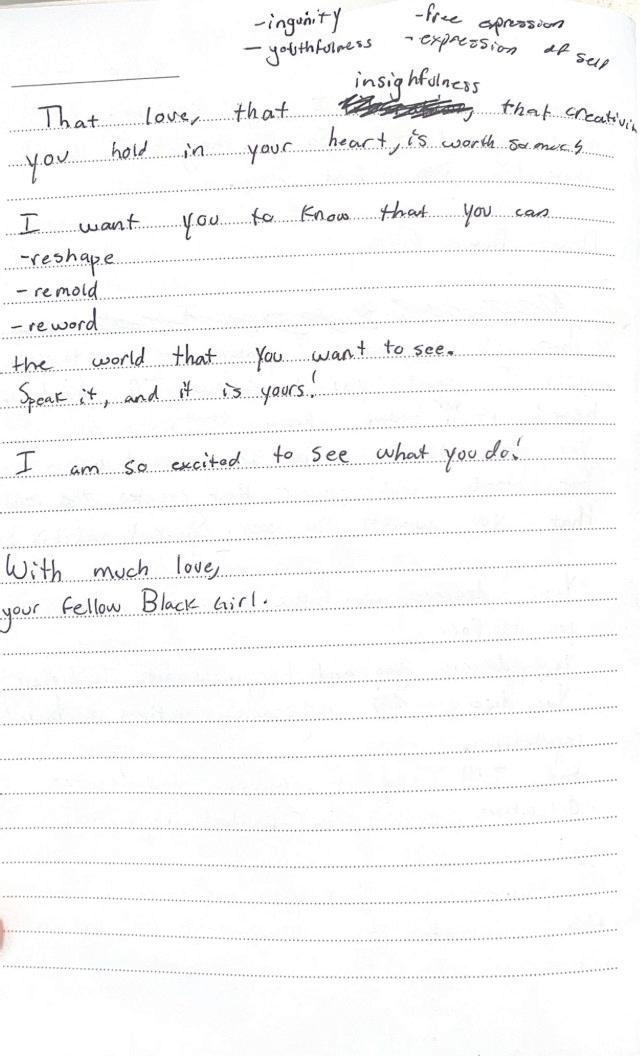 -ingunity -free expression
- youthfulness - expression of self
insighfulness
That love, that , that creativi
you hold in your heart, is worth so much
I want you to know that you can
-reshape
- remold
- reword
the world that you want to see.
Speak it, and it is yours!
I am so excited to see what you do!
With much love,
your fellow Black Girl.